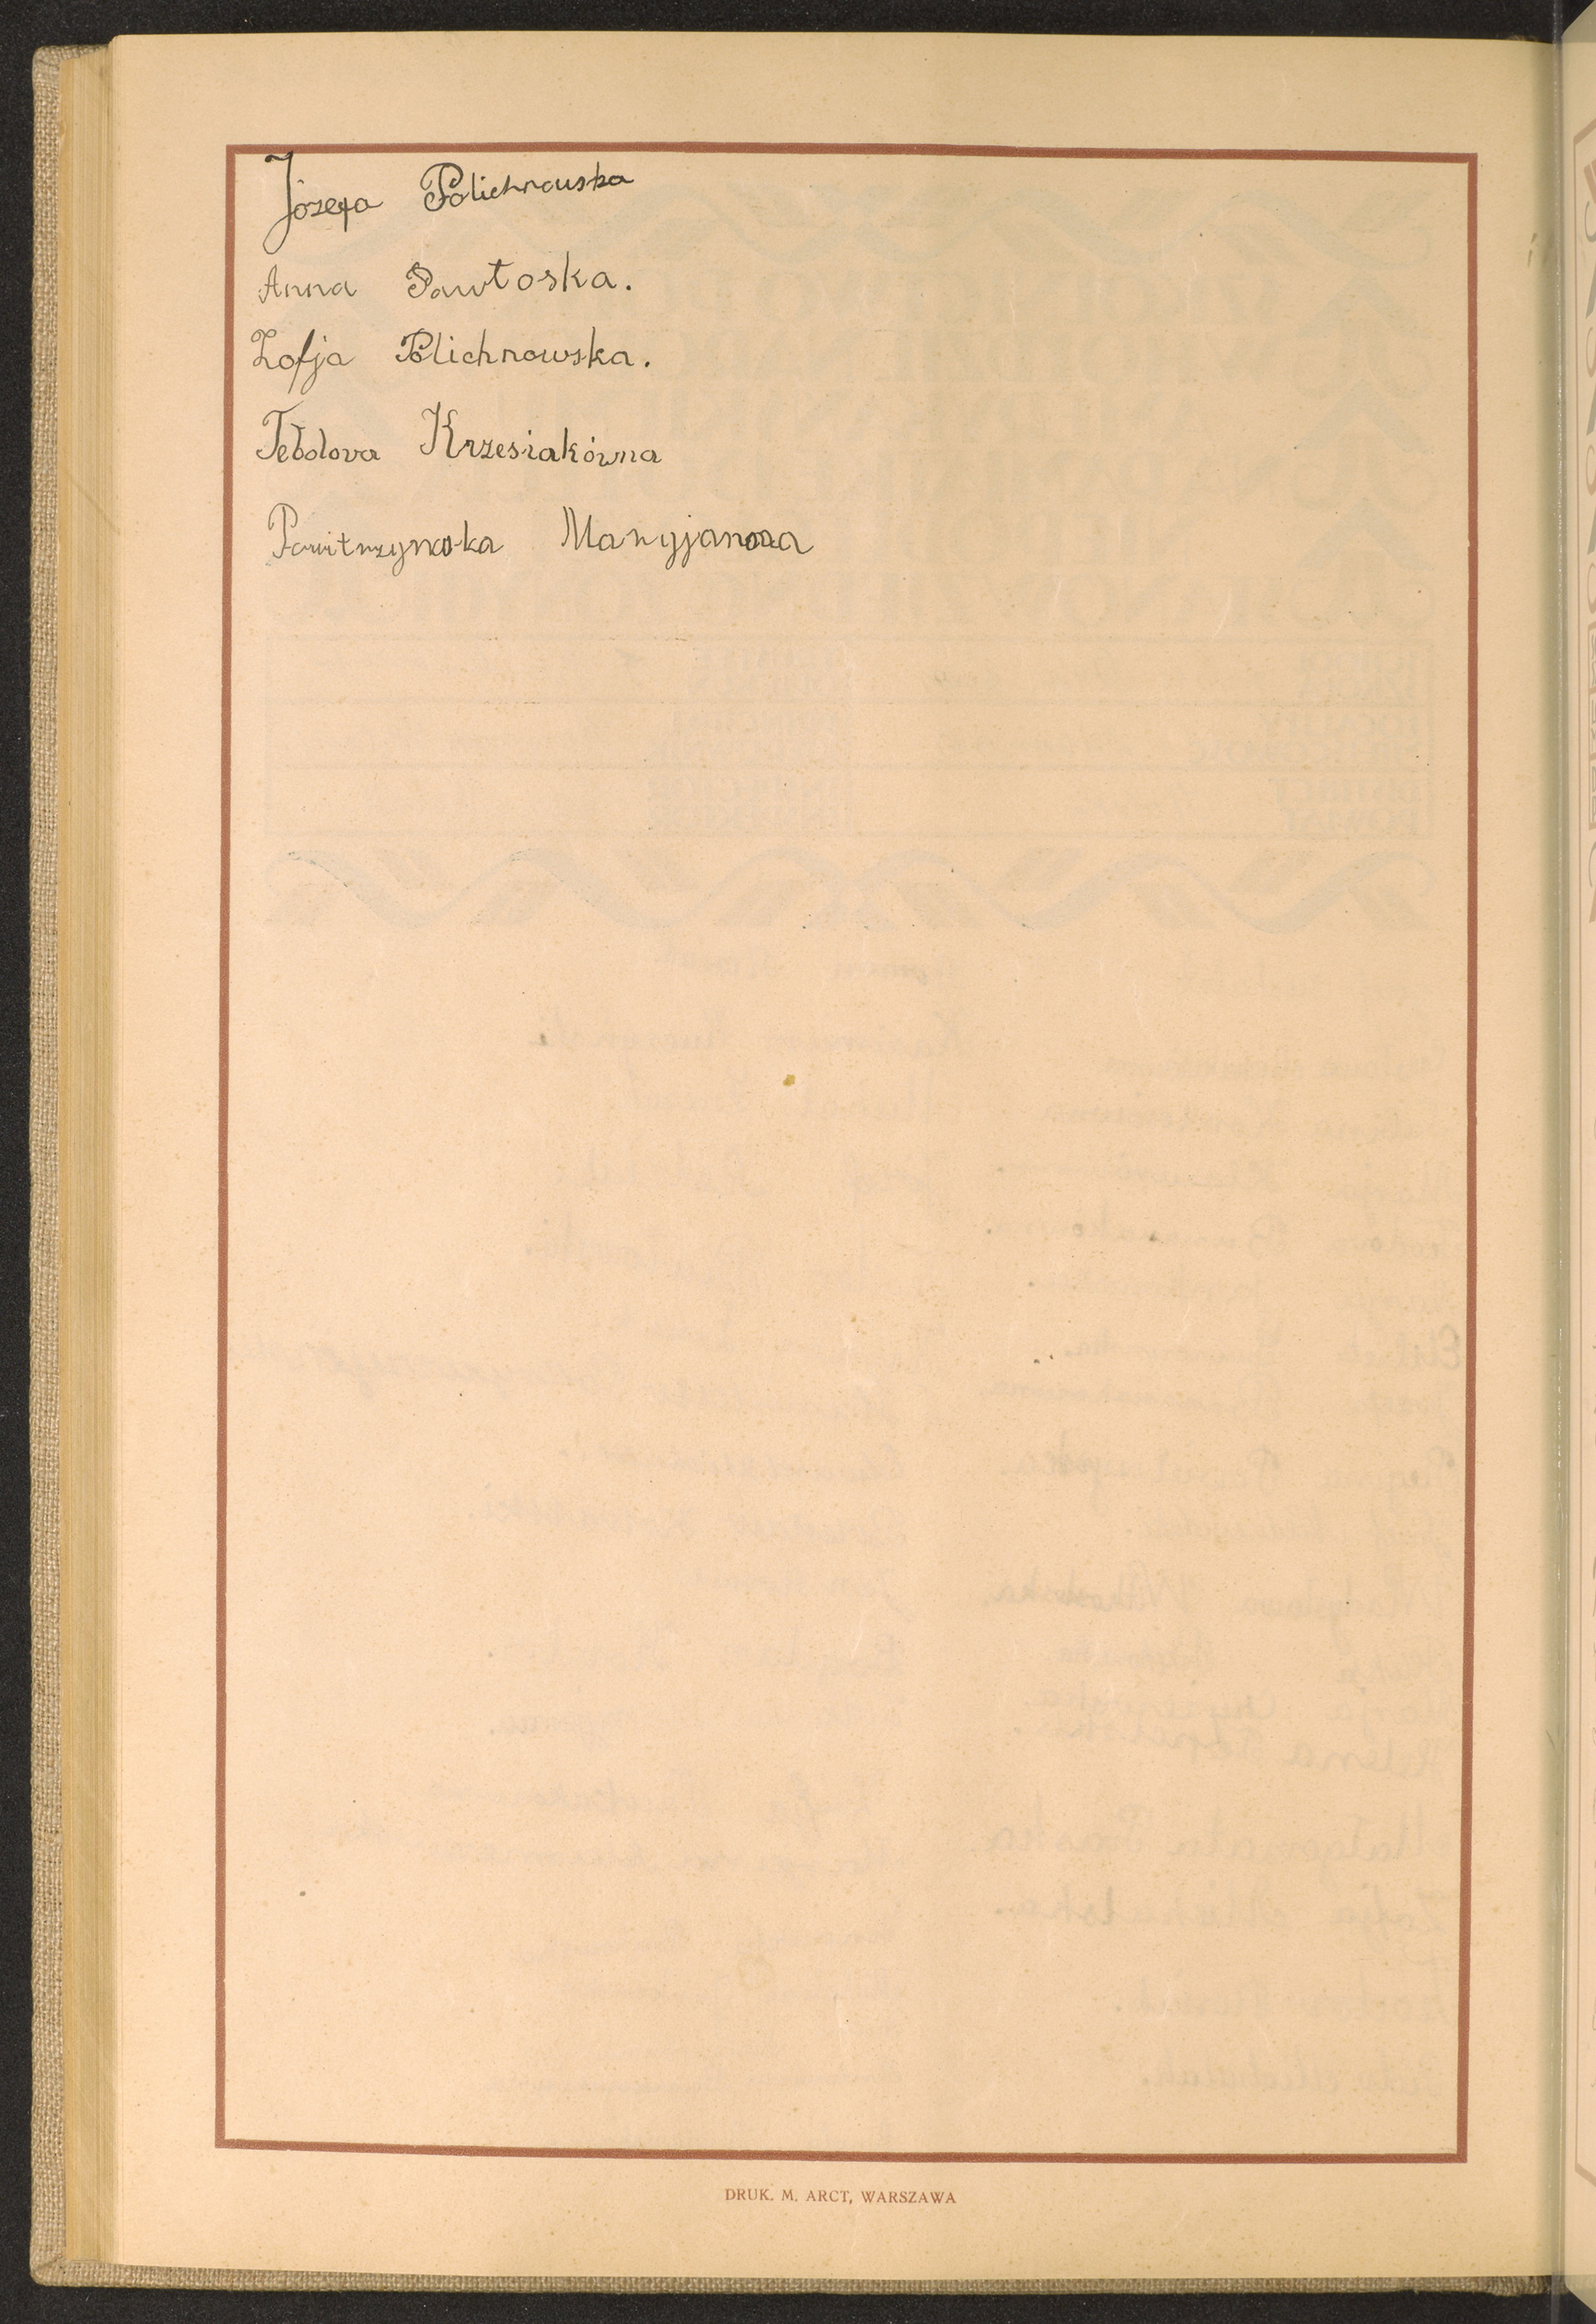 Józefa Polichnowska
Anna Pawłoska.
Zofja Polichnowska.
Teodora Krzesiakówna
Powitrzynska Maryjanna
DRUK. M. ARCT, WARSZAWA